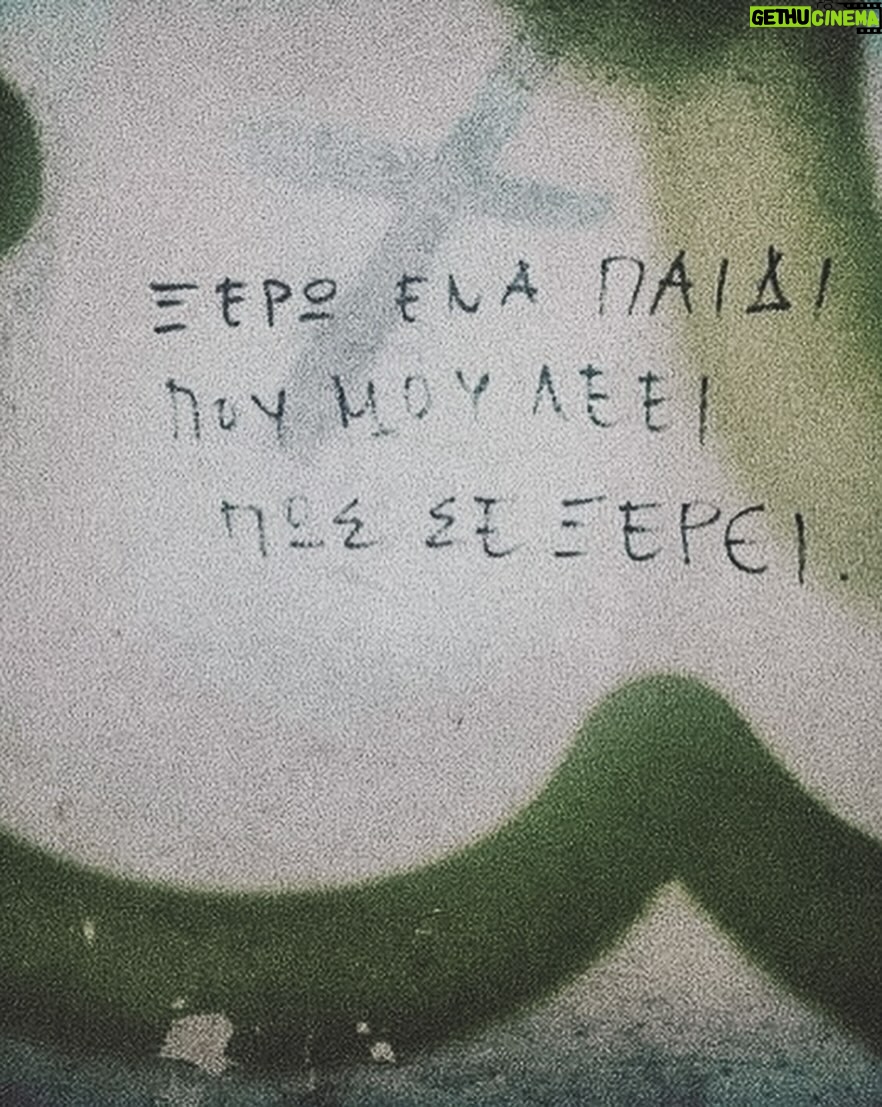 GETHUCINEMA
ΞΕΡΩ ΕΝΑ ΠΑΙΔΙ
ΠΟΥ ΜΟΥ ΛΕΕΙ
ΠΩΣ ΣΕ ΞΕΡΕΙ.